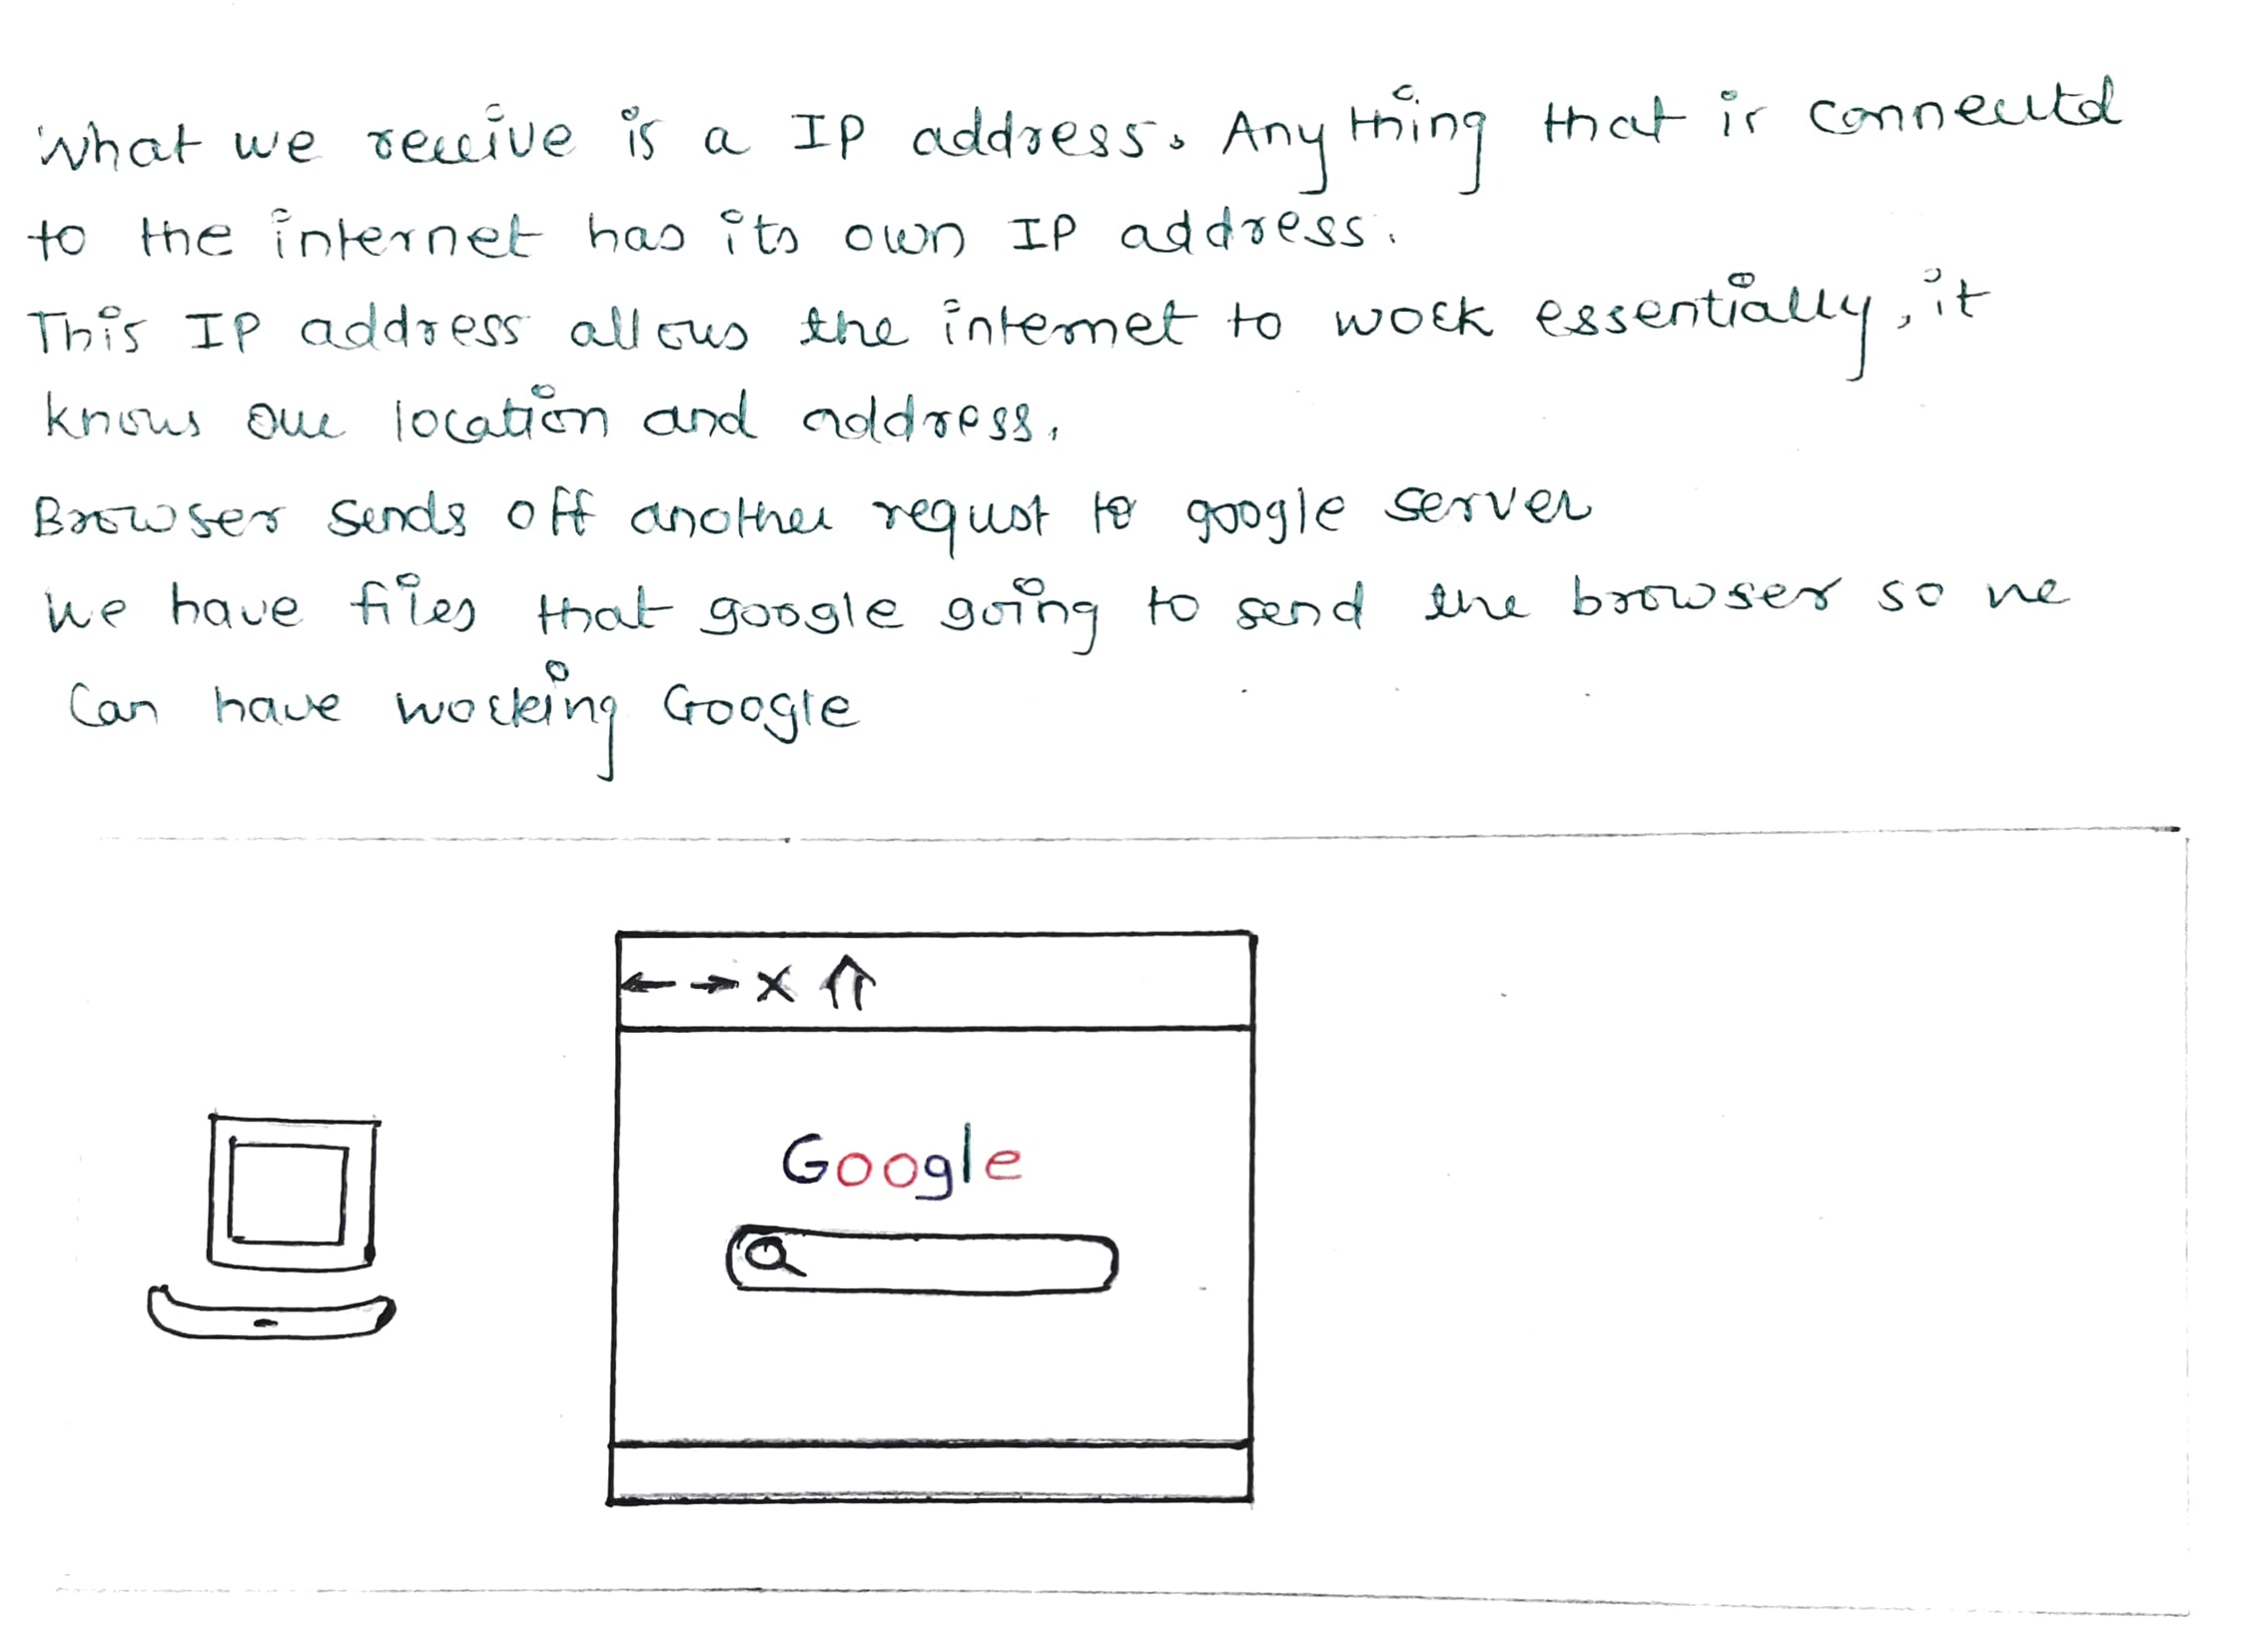 What we receive is a IP address. Any thing that is connected
to the internet has its own IP address.
This IP address allows the internet to work essentially, it
knows our location and address.
Browser sends off another requst to google server
We have files that google going to send the browser so we
Can have working Google
Google